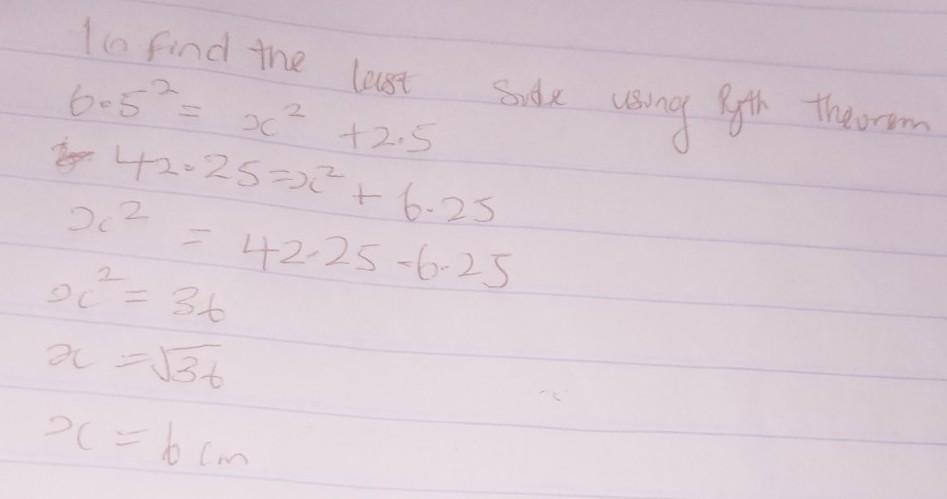 To find the least side using Pyth theorem
6.5² = x² + 2.5
42.25 = x² + 6.25
x² = 42.25 - 6.25
x² = 36
x = √36
x = 6 cm